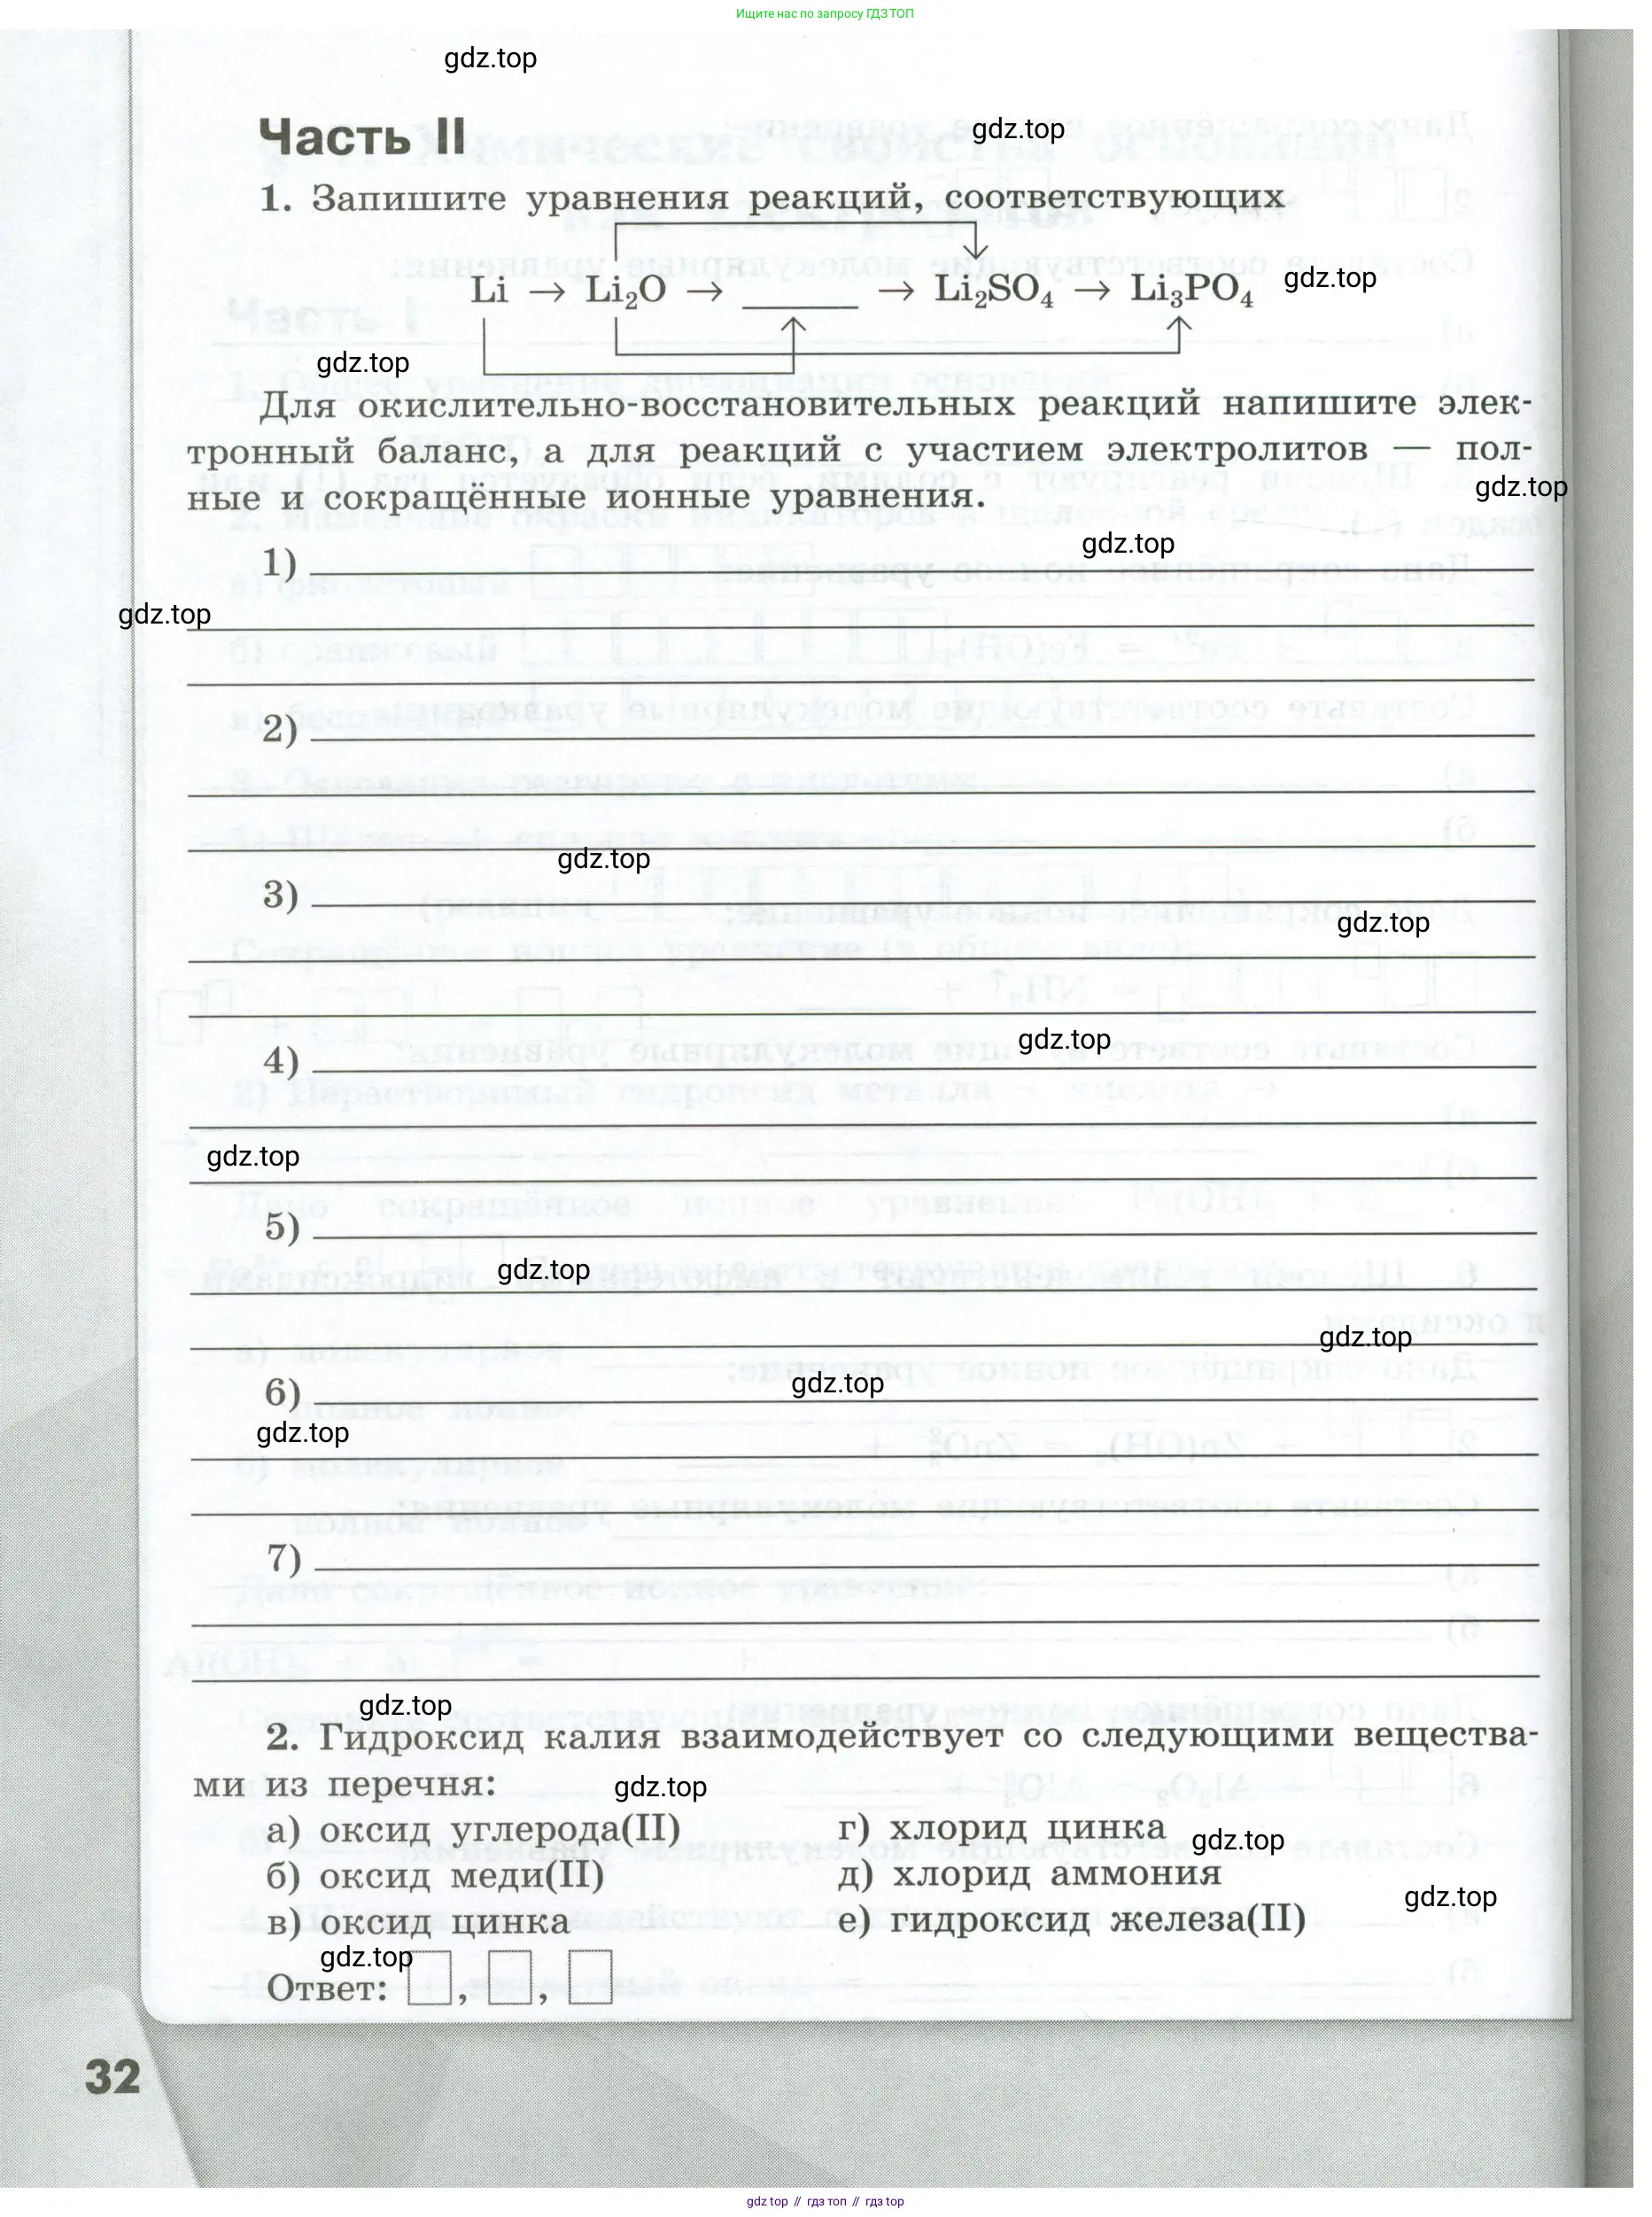 Ищите нас по запросу ГДЗ ТОП
gdz.top
Часть II
gdz.top
1. Запишите уравнения реакций, соответствующих
Li → Li₂O → ______ → Li₂SO₄ → Li₃PO₄
gdz.top
gdz.top
Для окислительно-восстановительных реакций напишите элек-
тронный баланс, а для реакций с участием электролитов — пол-
ные и сокращённые ионные уравнения.
gdz.top
gdz.top
1)
gdz.top
2)
gdz.top
3)
gdz.top
gdz.top
4)
gdz.top
5)
gdz.top
gdz.top
gdz.top
6)
gdz.top
7)
gdz.top
2. Гидроксид калия взаимодействует со следующими вещества-
ми из перечня:
gdz.top
а) оксид углерода(II)
г) хлорид цинка
gdz.top
б) оксид меди(II)
д) хлорид аммония
gdz.top
в) оксид цинка
е) гидроксид железа(II)
gdz.top
Ответ: , ,
32
gdz top // гдз топ // гдз top